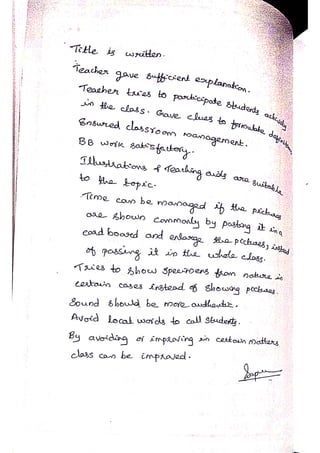 Title is written.
Teacher gave sufficient explanation.
Teacher tries to participate students actively
in the class. Gave clues to formulate definition
Ensured classroom management.
BB work satisfactory.
Illustrations & Teaching aids are suitable
to the topic.
Time can be managed if the pictures
are shown commonly by pasting it in a
card board and enlarge the pictures, instead
of passing it in the whole class.
Tries to show specimens from nature in
certain cases instead of showing pictures.
Sound should be more authentic.
Avoid local words to call students.
By avoiding or improving in certain matters
class can be improved.